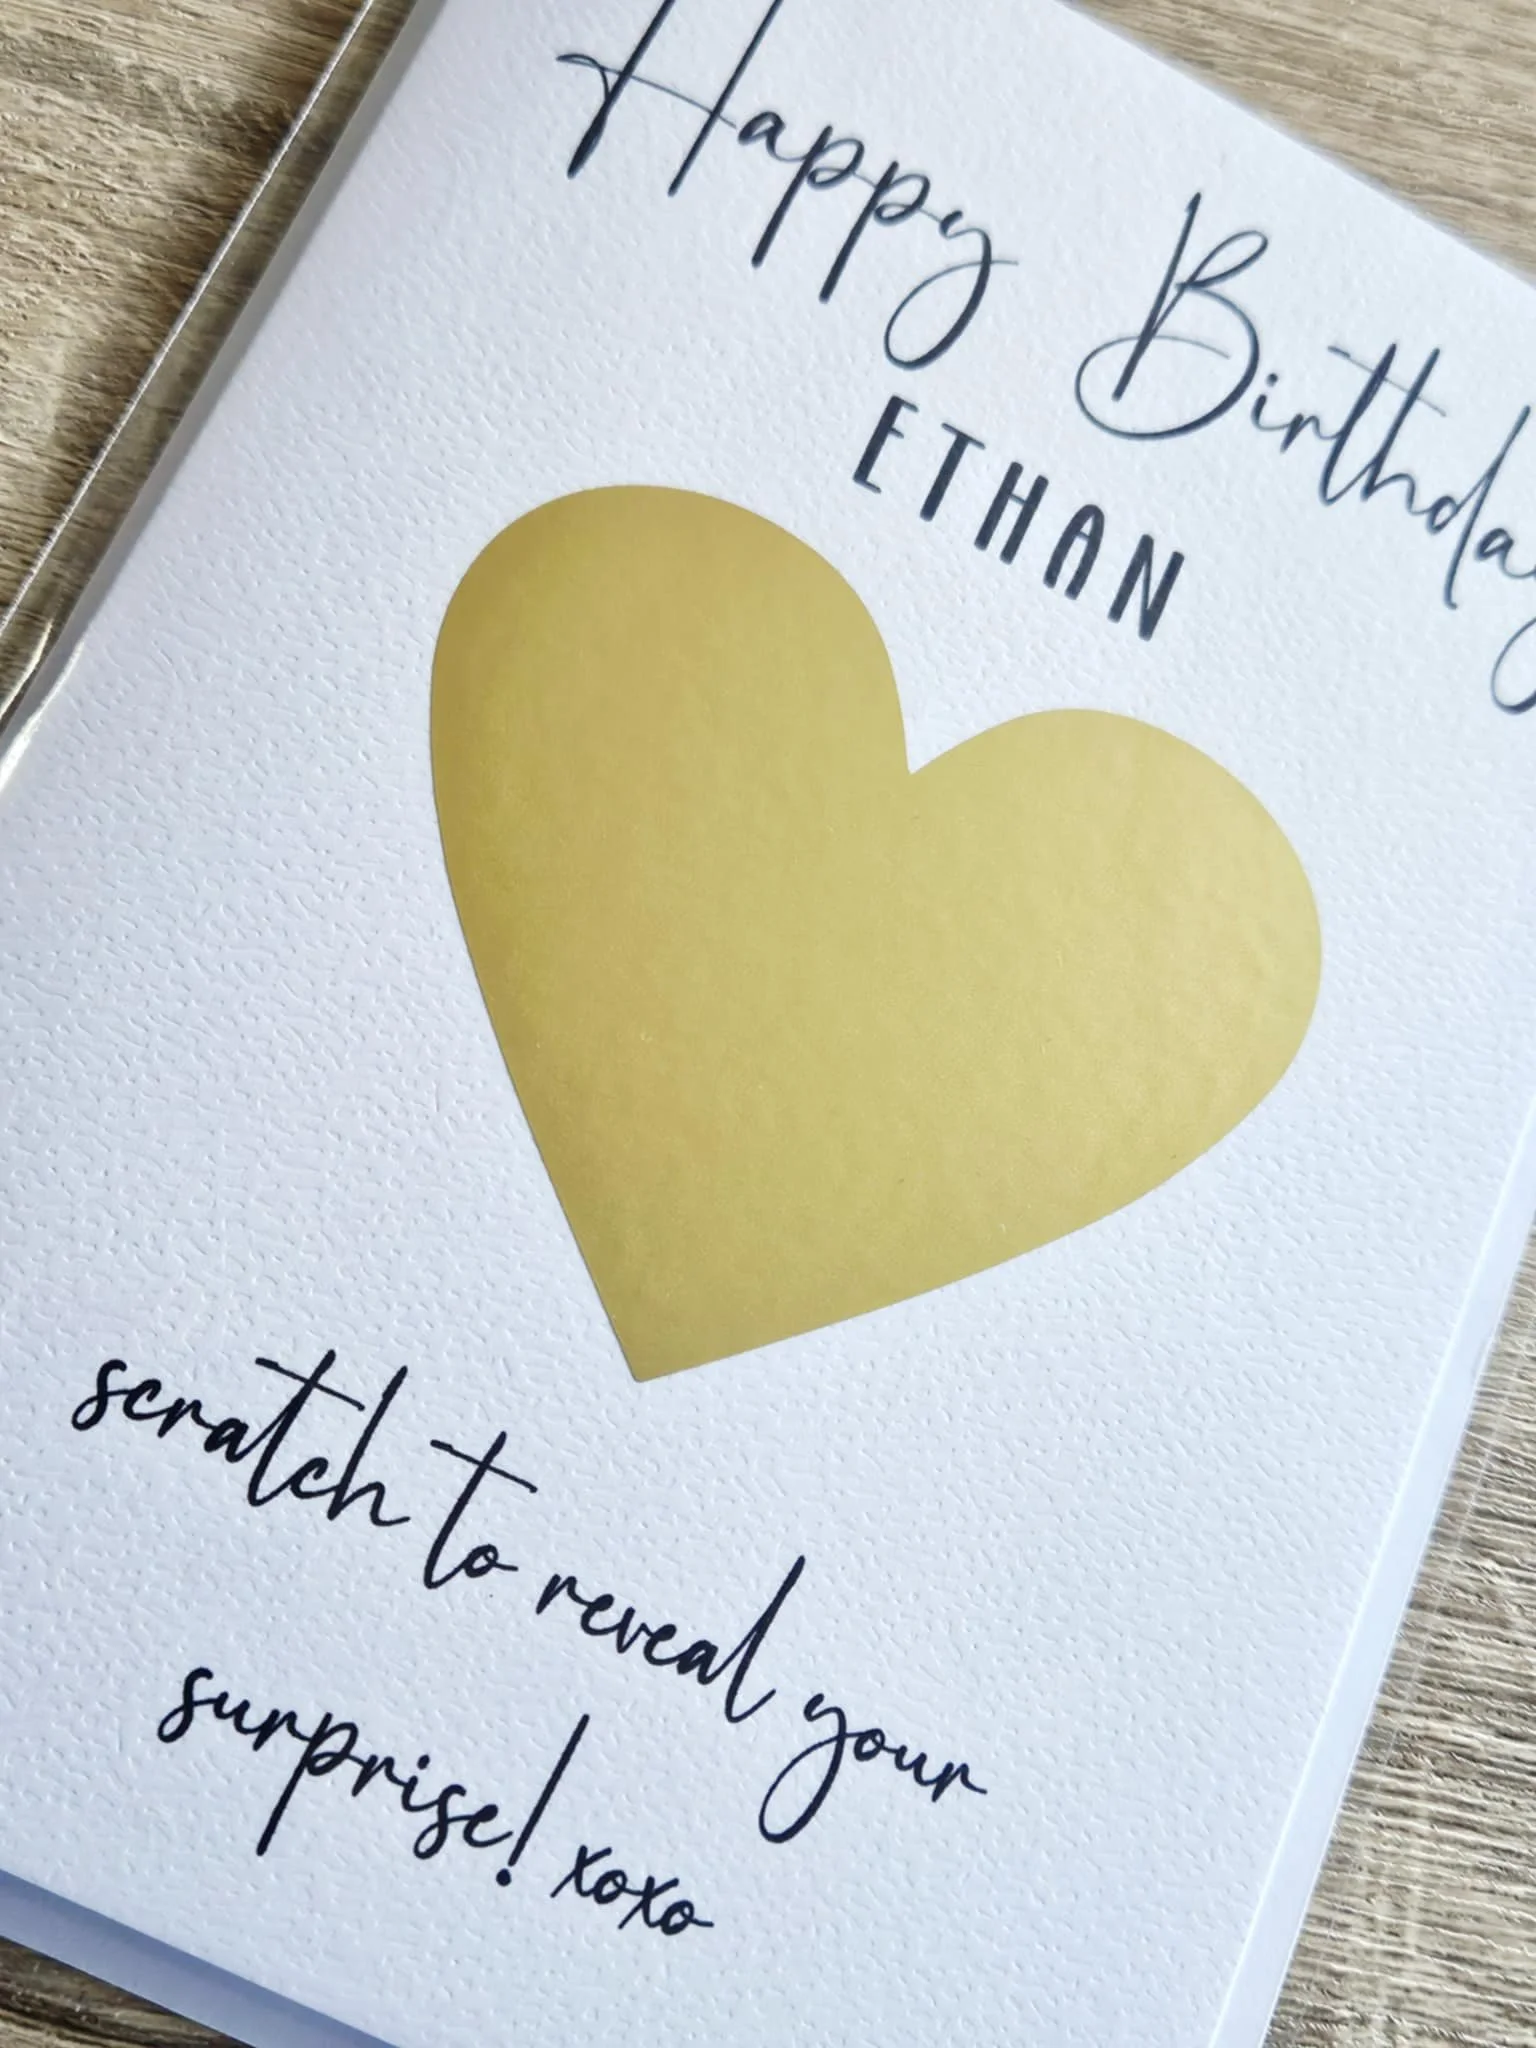 Happy Birthday
ETHAN
scratch to reveal your
surprise! xoxo